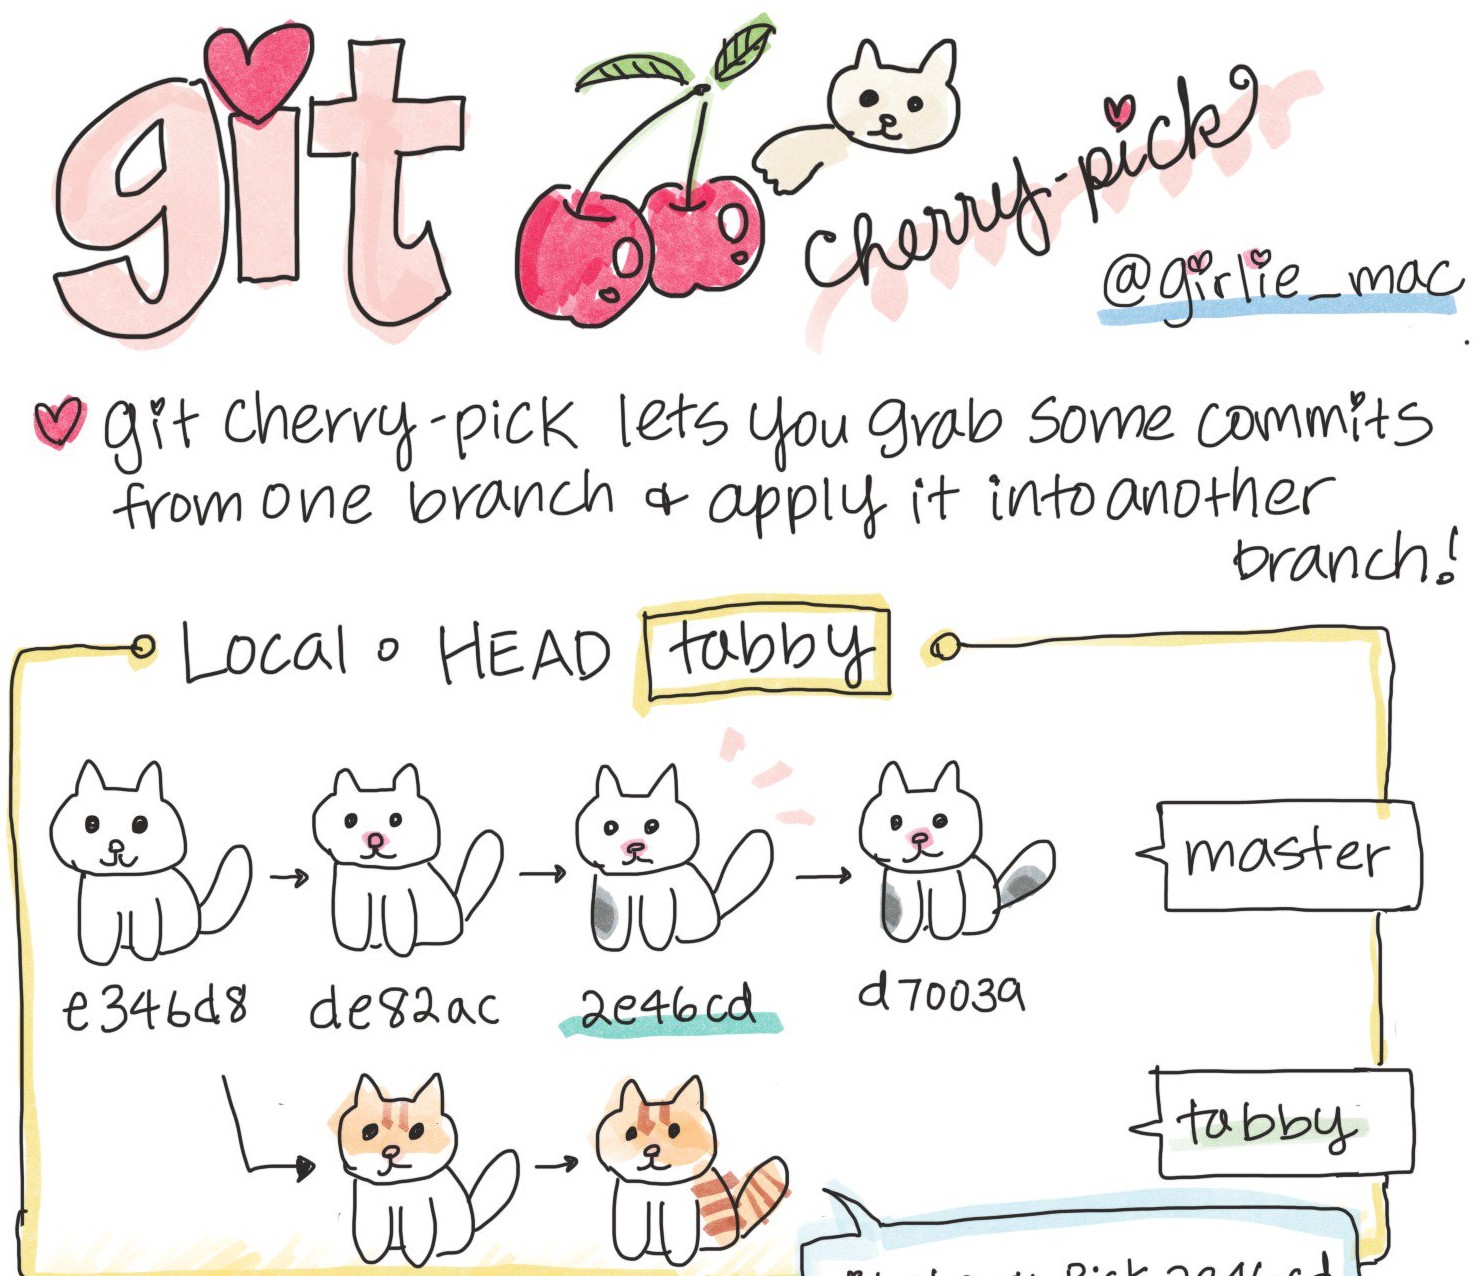 git cherry-pick
@girlie_mac
git cherry-pick lets you grab some commits
from one branch & apply it into another
branch!
Local • HEAD tabby
master
e346d8 de82ac 2e46cd d70039
tabby
Pick 2e46cd